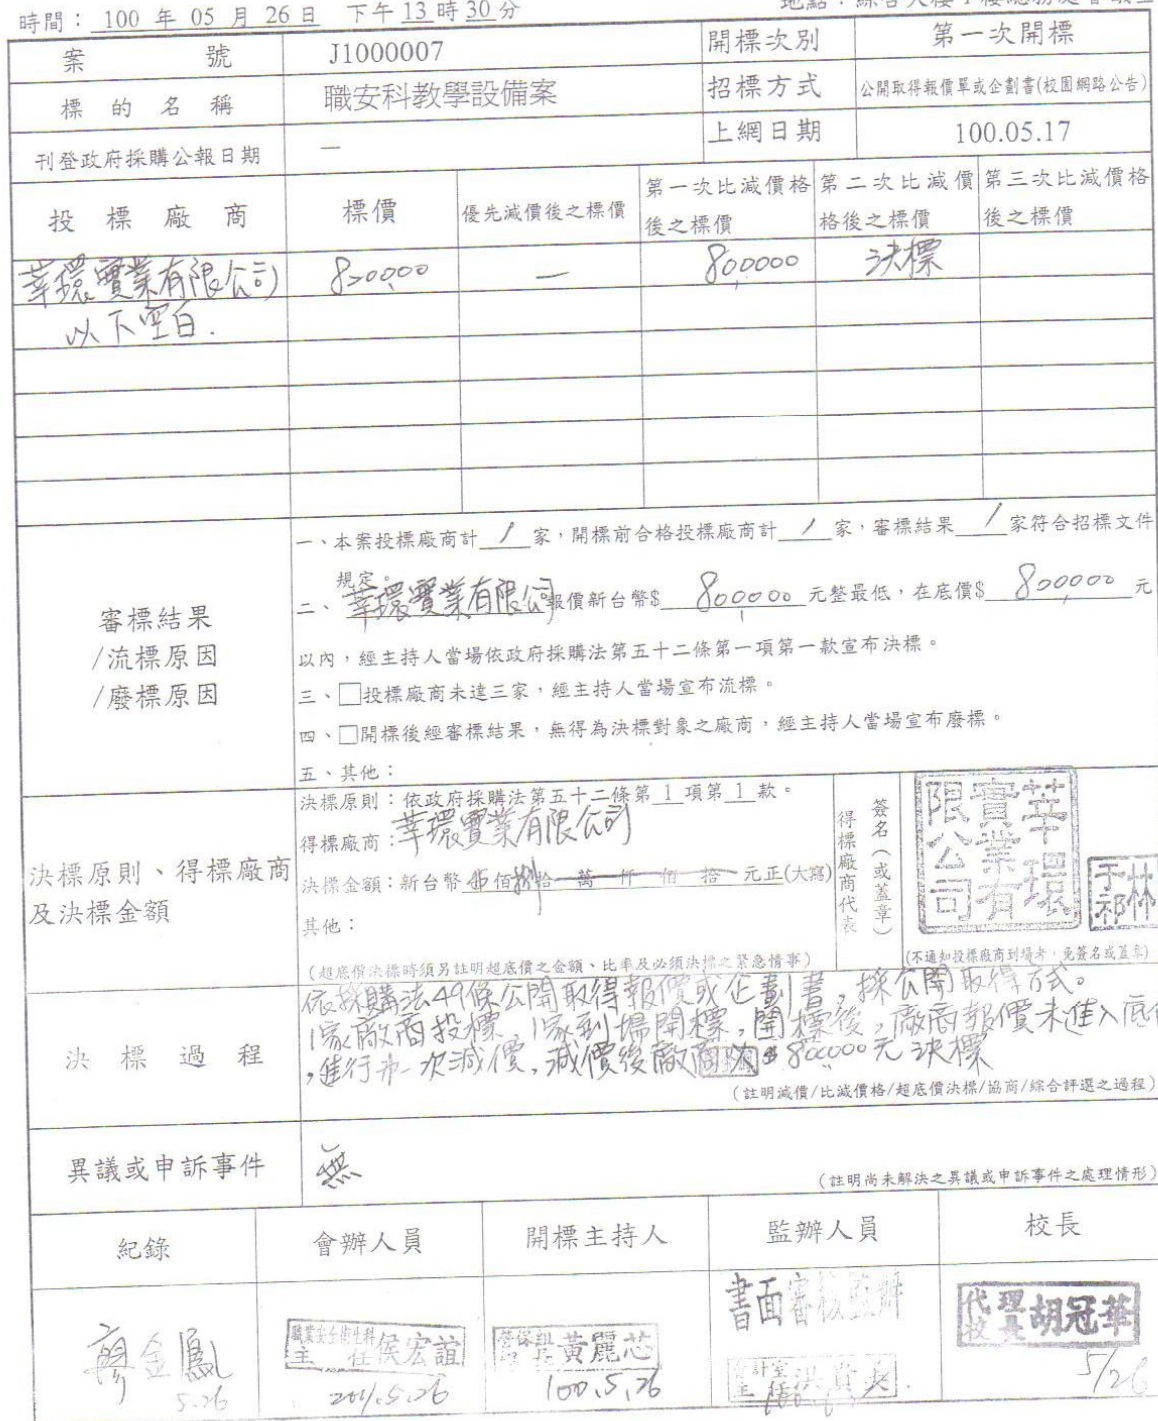 時間： 100 年 05 月 26 日 下午 13 時 30 分
案號 J1000007 開標次別 第一次開標
標的名稱 職安科教學設備案 招標方式 公開取得報價單或企劃書(校園網路公告)
刊登政府採購公報日期 — 上網日期 100.05.17
投標廠商 標價 優先減價後之標價 第一次比減價格後之標價 第二次比減價格後之標價 第三次比減價格後之標價
莘環實業有限公司 820000 — 800000 決標
以下空白.
審標結果
/流標原因
/廢標原因
一、本案投標廠商計 1 家，開標前合格投標廠商計 1 家，審標結果 1 家符合招標文件
規定。
二、莘環實業有限公司報價新台幣$ 800000 元整最低，在底價$ 800000 元
以內，經主持人當場依政府採購法第五十二條第一項第一款宣布決標。
三、□投標廠商未達三家，經主持人當場宣布流標。
四、□開標後經審標結果，無得為決標對象之廠商，經主持人當場宣布廢標。
五、其他：
決標原則、得標廠商
及決標金額
決標原則：依政府採購法第五十二條第 1 項第 1 款。
得標廠商：莘環實業有限公司
決標金額：新台幣 佰捌拾 萬 仟 佰 拾 元正(大寫)
其他：
(超底價決標時須另註明超底價之金額、比率及必須決標之緊急情事)
得標廠商代表
簽名(或蓋章)
莘環實業有限公司
林于祁
(不通知投標廠商到場者，免簽名或蓋章)
決標過程
依採購法49條公開取得報價或企劃書，採公開取得方式。
1家廠商投標，1家到場開標，開標後，廠商報價未進入底
，進行第一次減價，減價後廠商 $800000元決標
(註明減價/比減價格/超底價決標/協商/綜合評選之過程)
異議或申訴事件 無
(註明尚未解決之異議或申訴事件之處理情形)
紀錄 會辦人員 開標主持人 監辦人員 校長
書面審核監辦
廖金鳳 5.26
職業安全衛生科主任 侯宏誼 2011.5.26
黃麗芯 100.5.26
會計室主任
代理校長 胡冠華 5/26